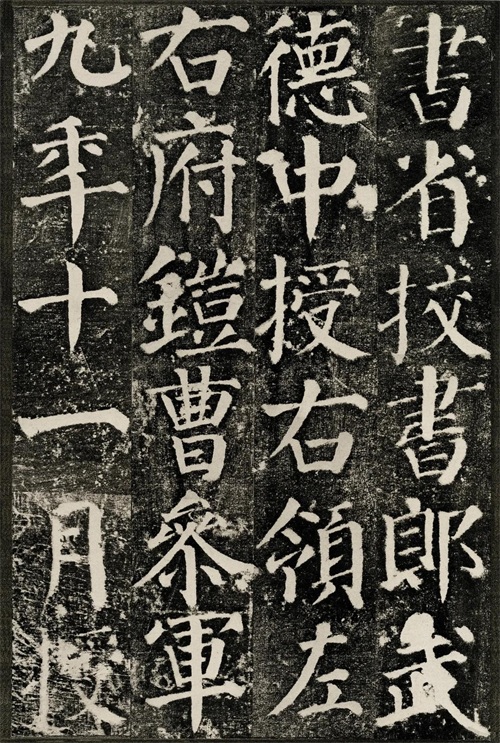 書省挍書郎武
德中授右領左
右府鎧曹叅軍
九年十一月授